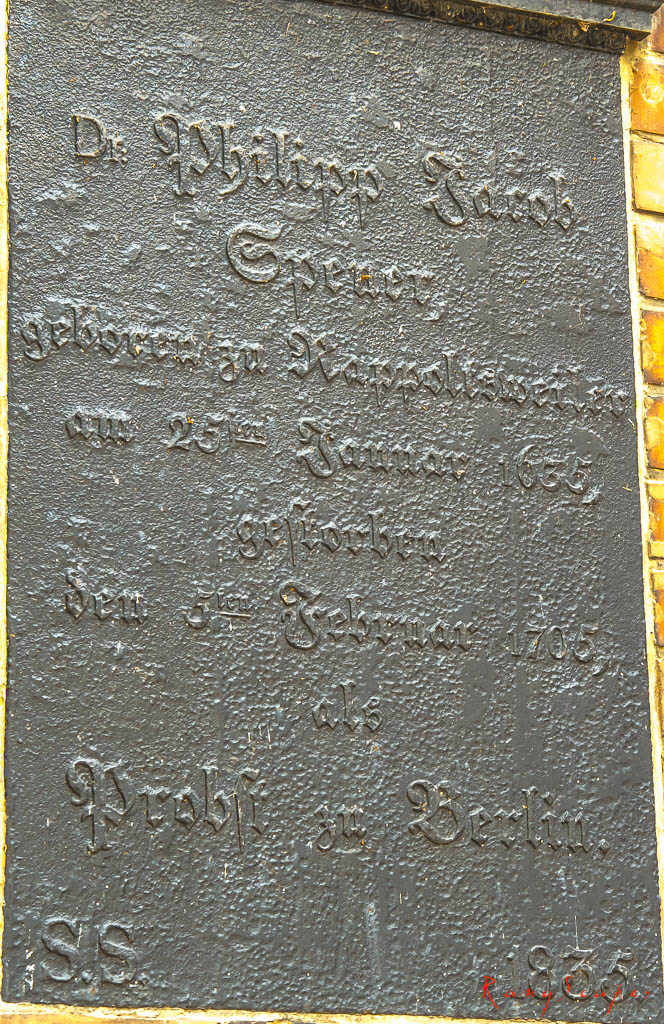 Dr. Philipp Jacob
Spener,
geboren zu Rappoltsweiler
am 25sten Januar 1635,
gestorben
den 5ten Februar 1705,
als
Probst zu Berlin.
S.S. 1835